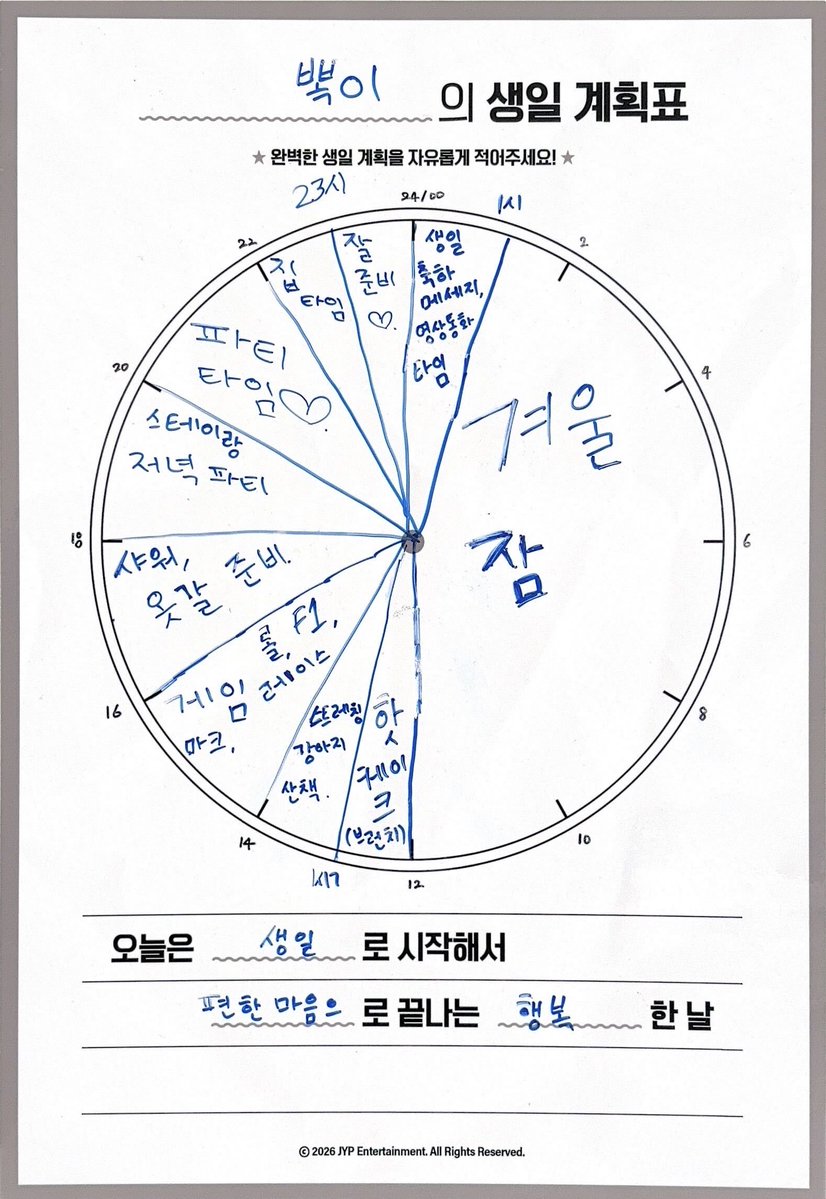 뽁이 의 생일 계획표
★ 완벽한 생일 계획을 자유롭게 적어주세요! ★
23시
24/00
1시
22
2
20
4
18
6
16
8
14
10
1시
12
생일
축하
메세지,
영상통화
타임
겨울
잠
핫
케이
크
(브런치)
스트레칭
강아지
산책.
롤, F1,
게임 레이스
마크,
샤워,
옷갈 준비.
스테이랑
저녁 파티
파티
타임♡.
집
타임
잘
준비
♡.
오늘은 생일 로 시작해서
편한 마음으 로 끝나는 행복 한 날
© 2026 JYP Entertainment. All Rights Reserved.